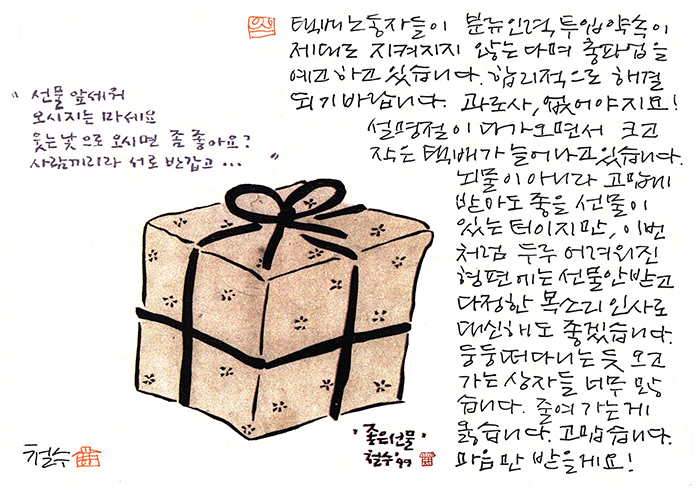 택배노동자들이 분류인력 투입약속이
제대로 지켜지지 않는다며 총파업을
예고하고 있습니다. 합리적으로 해결
되기 바랍니다. 과로사, 없어야지요!
설명절이 다가오면서 크고
작은 택배가 늘어나고 있습니다.
뇌물이 아니라 고맙게
받아도 좋을 선물이
있는 터이지만, 이번
처럼 두루 어려워진
형편에는 선물 안 받고
다정한 목소리 인사로
대신해도 좋겠습니다.
둥둥 떠다니는 듯 오고
가는 상자들 너무 많
습니다. 줄여가는 게
옳습니다. 고맙습니다.
마음만 받을게요!
" 선물 앞세워
오시지는 마세요
웃는 낯으로 오시면 좀 좋아요?
사람끼리라 서로 반갑고 ... "
'좋은선물'
철수 '99
철수